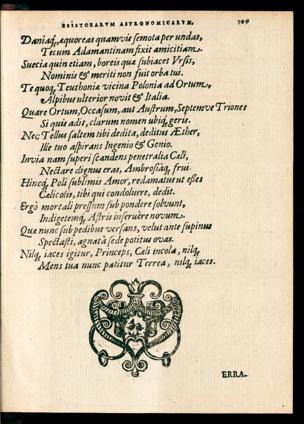 EPISTOLARVM ASTRONOMICARVM.
Daniaq́, æquoreas quamvis semota per undas,
Tecum Adamantinam fixit amicitiam.
Suecia quin etiam, boreis quæ subiacet Vrsis,
Nominis & meriti non fuit orba tui.
Te quoq́, Teuthoniæ vicina Polonia ad Ortum,
Alpibus ulterior novit & Italia.
Quare Ortum, Occasum, aut Austrum, Septemve Triones
Si quis adit, clarum nomen ubiq́, geris.
Nec Tellus saltem tibi dedita, deditus Æther,
Ille tuo aspirans Ingenio & Genio.
Invia nam superi scandens penetralia Cœli,
Nectare dignus eras, Ambrosiáq́, frui.
Hincq́, Poli sublimis Amor, redamatus ut esses
Cœlicolis, tibi qui condoluere, dedit.
Ergò mortali pressum sub pondere solvunt,
Indigetemq́, Astris inseruêre novum.
Quæ nunc sub pedibus versans, velut ante supinus
Spectasti, agnatâ sede potitus ovas.
Nilq́, iaces igitur, Princeps, Cœli incola, nilq́,
Mens tua nunc patitur Terrea, nilq́, iaces.
ERRA-